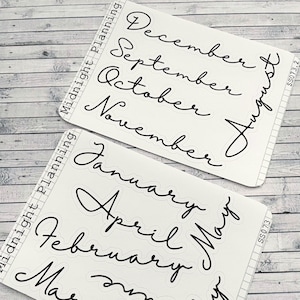 Midnight Planning
December
September
October
November
August
Midnight Planning
January
April
February
May